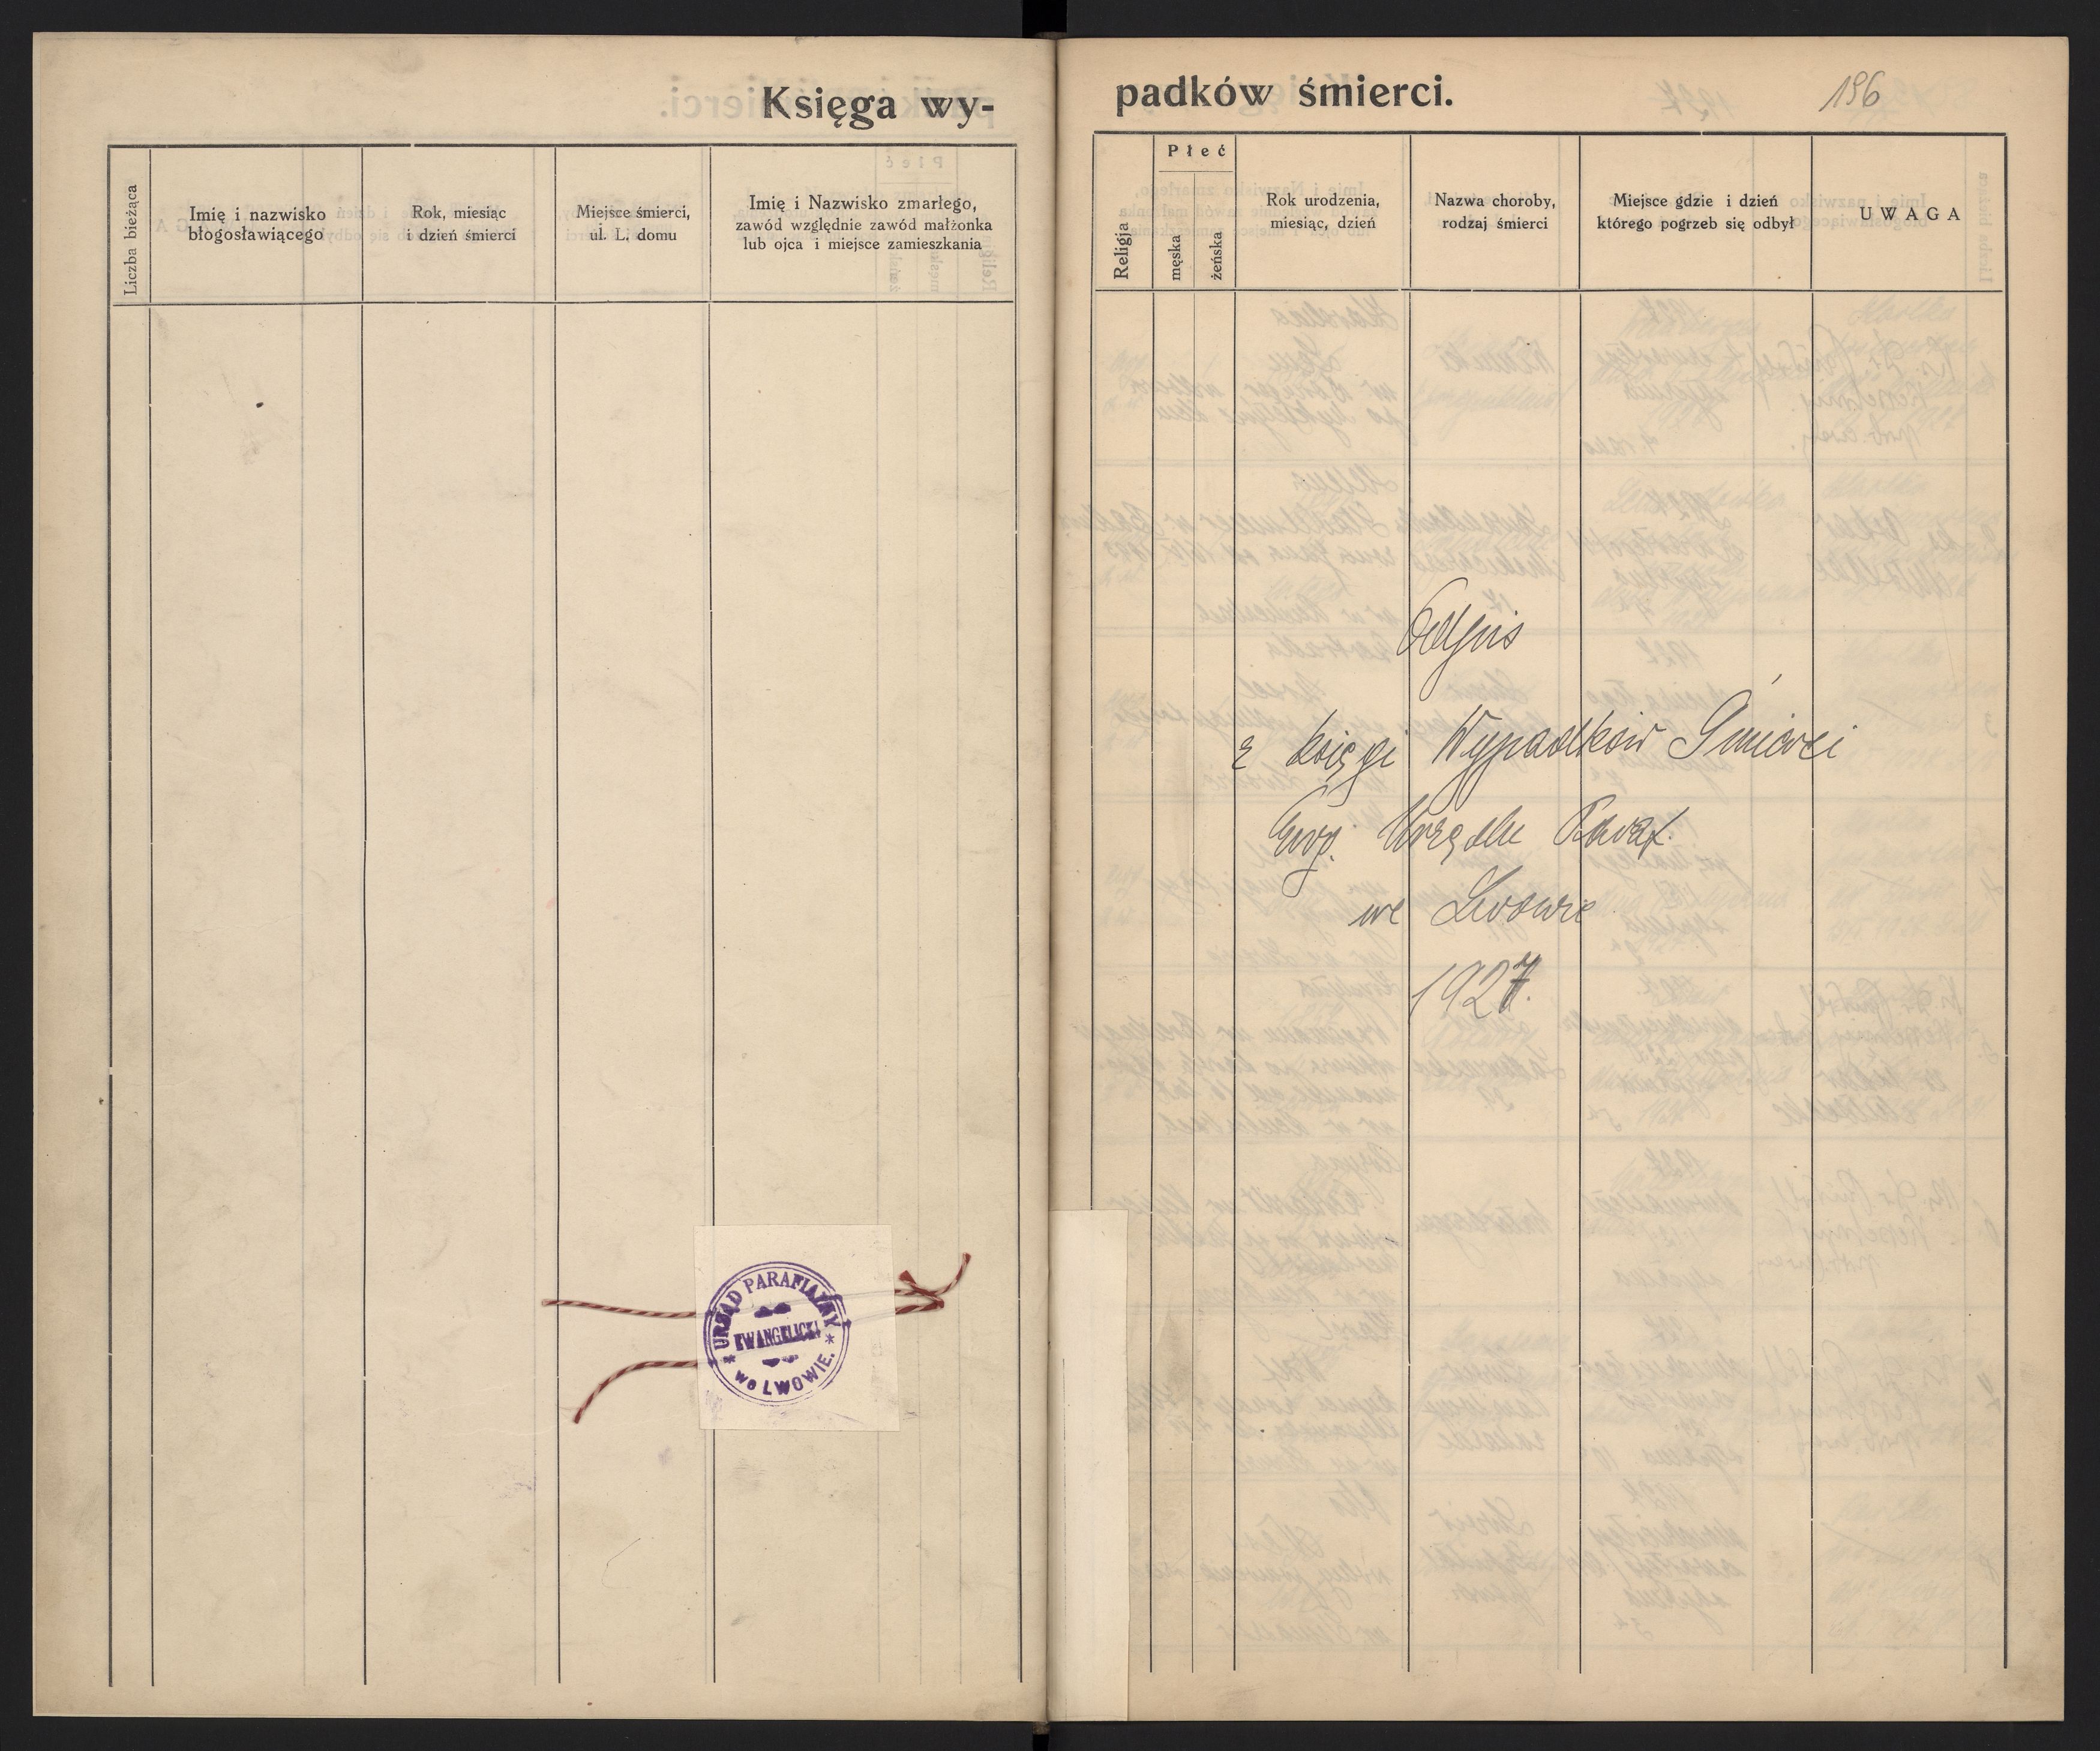 Księga wy-
Liczba bieżąca
Imię i nazwisko
błogosławiącego
Rok, miesiąc
i dzień śmierci
Miejsce śmierci,
ul. L. domu
Imię i Nazwisko zmarłego,
zawód względnie zawód małżonka
lub ojca i miejsce zamieszkania
URZĄD PARAFIALNY
EWANGELICKI
we LWOWIE.
padków śmierci.
196
Religja
Płeć
męska
żeńska
Rok urodzenia,
miesiąc, dzień
Nazwa choroby,
rodzaj śmierci
Miejsce gdzie i dzień
którego pogrzeb się odbył
UWAGA
Odpis
z księgi Wypadków Śmierci
Ewg. Urzędu Paraf.
we Lwowie
1927.